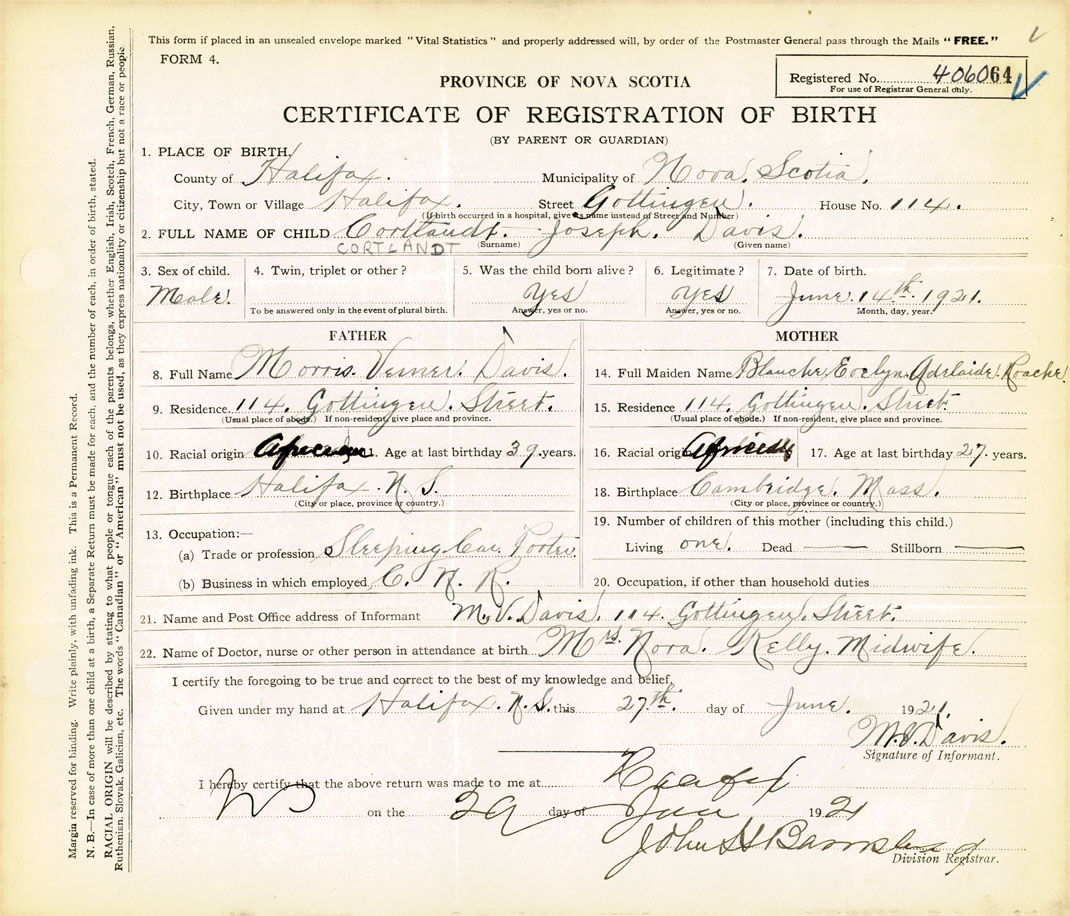 This form if placed in an unsealed envelope marked "Vital Statistics" and properly addressed will, by order of the Postmaster General pass through the Mails "FREE."
FORM 4.
PROVINCE OF NOVA SCOTIA
Registered No. 406064
For use of Registrar General only.
CERTIFICATE OF REGISTRATION OF BIRTH
(BY PARENT OR GUARDIAN)
1. PLACE OF BIRTH
County of Halifax. Municipality of Nova Scotia.
City, Town or Village Halifax. Street Gottingen. House No. 114.
(If birth occurred in a hospital, give its name instead of Street and Number)
2. FULL NAME OF CHILD Cortlandt. Joseph. Davis.
CORTLANDT (Surname) (Given name)
3. Sex of child. 4. Twin, triplet or other? 5. Was the child born alive? 6. Legitimate? 7. Date of birth.
Male. Yes Yes June 14th 1921.
To be answered only in the event of plural birth. Answer, yes or no. Answer, yes or no. Month, day, year.
FATHER MOTHER
8. Full Name Morris. Verner. Davis. 14. Full Maiden Name Blanche Evelyn Adelaide Roache
9. Residence 114. Gottingen Street. 15. Residence 114. Gottingen Street.
(Usual place of abode.) If non-resident, give place and province. (Usual place of abode.) If non-resident, give place and province.
10. Racial origin African 11. Age at last birthday 39. years. 16. Racial origin African 17. Age at last birthday 27. years.
12. Birthplace Halifax. N. S. 18. Birthplace Cambridge. Mass.
(City or place, province or country.) (City or place, province or country.)
13. Occupation:— 19. Number of children of this mother (including this child.)
(a) Trade or profession Sleeping Car Porter Living one. Dead — Stillborn —
(b) Business in which employed C. N. R. 20. Occupation, if other than household duties
21. Name and Post Office address of Informant M. V. Davis. 114. Gottingen Street.
22. Name of Doctor, nurse or other person in attendance at birth Mrs. Nora. Kelly. Midwife.
I certify the foregoing to be true and correct to the best of my knowledge and belief.
Given under my hand at Halifax. N.S. this 27th. day of June. 1921.
M.V. Davis.
Signature of Informant.
I hereby certify that the above return was made to me at Halifax
on the 29 day of Jun 1921
John H Barnstead
Division Registrar.
Margin reserved for binding. Write plainly, with unfading ink. This is a Permanent Record.
N. B.—In case of more than one child at a birth, a Separate Return must be made for each, and the number of each, in order of birth, stated.
RACIAL ORIGIN will be described by stating to what people or tongue each of the parents belongs, whether English, Irish, Scotch, French, German, Russian,
Ruthenian, Slovak, Galician, etc. The words "Canadian" or "American" must not be used, as they express nationality or citizenship but not a race or people.